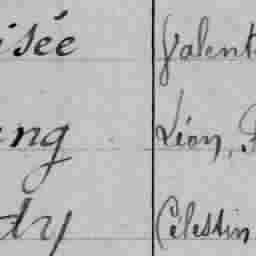 isée Valent
ng Léon,
dy Célestin